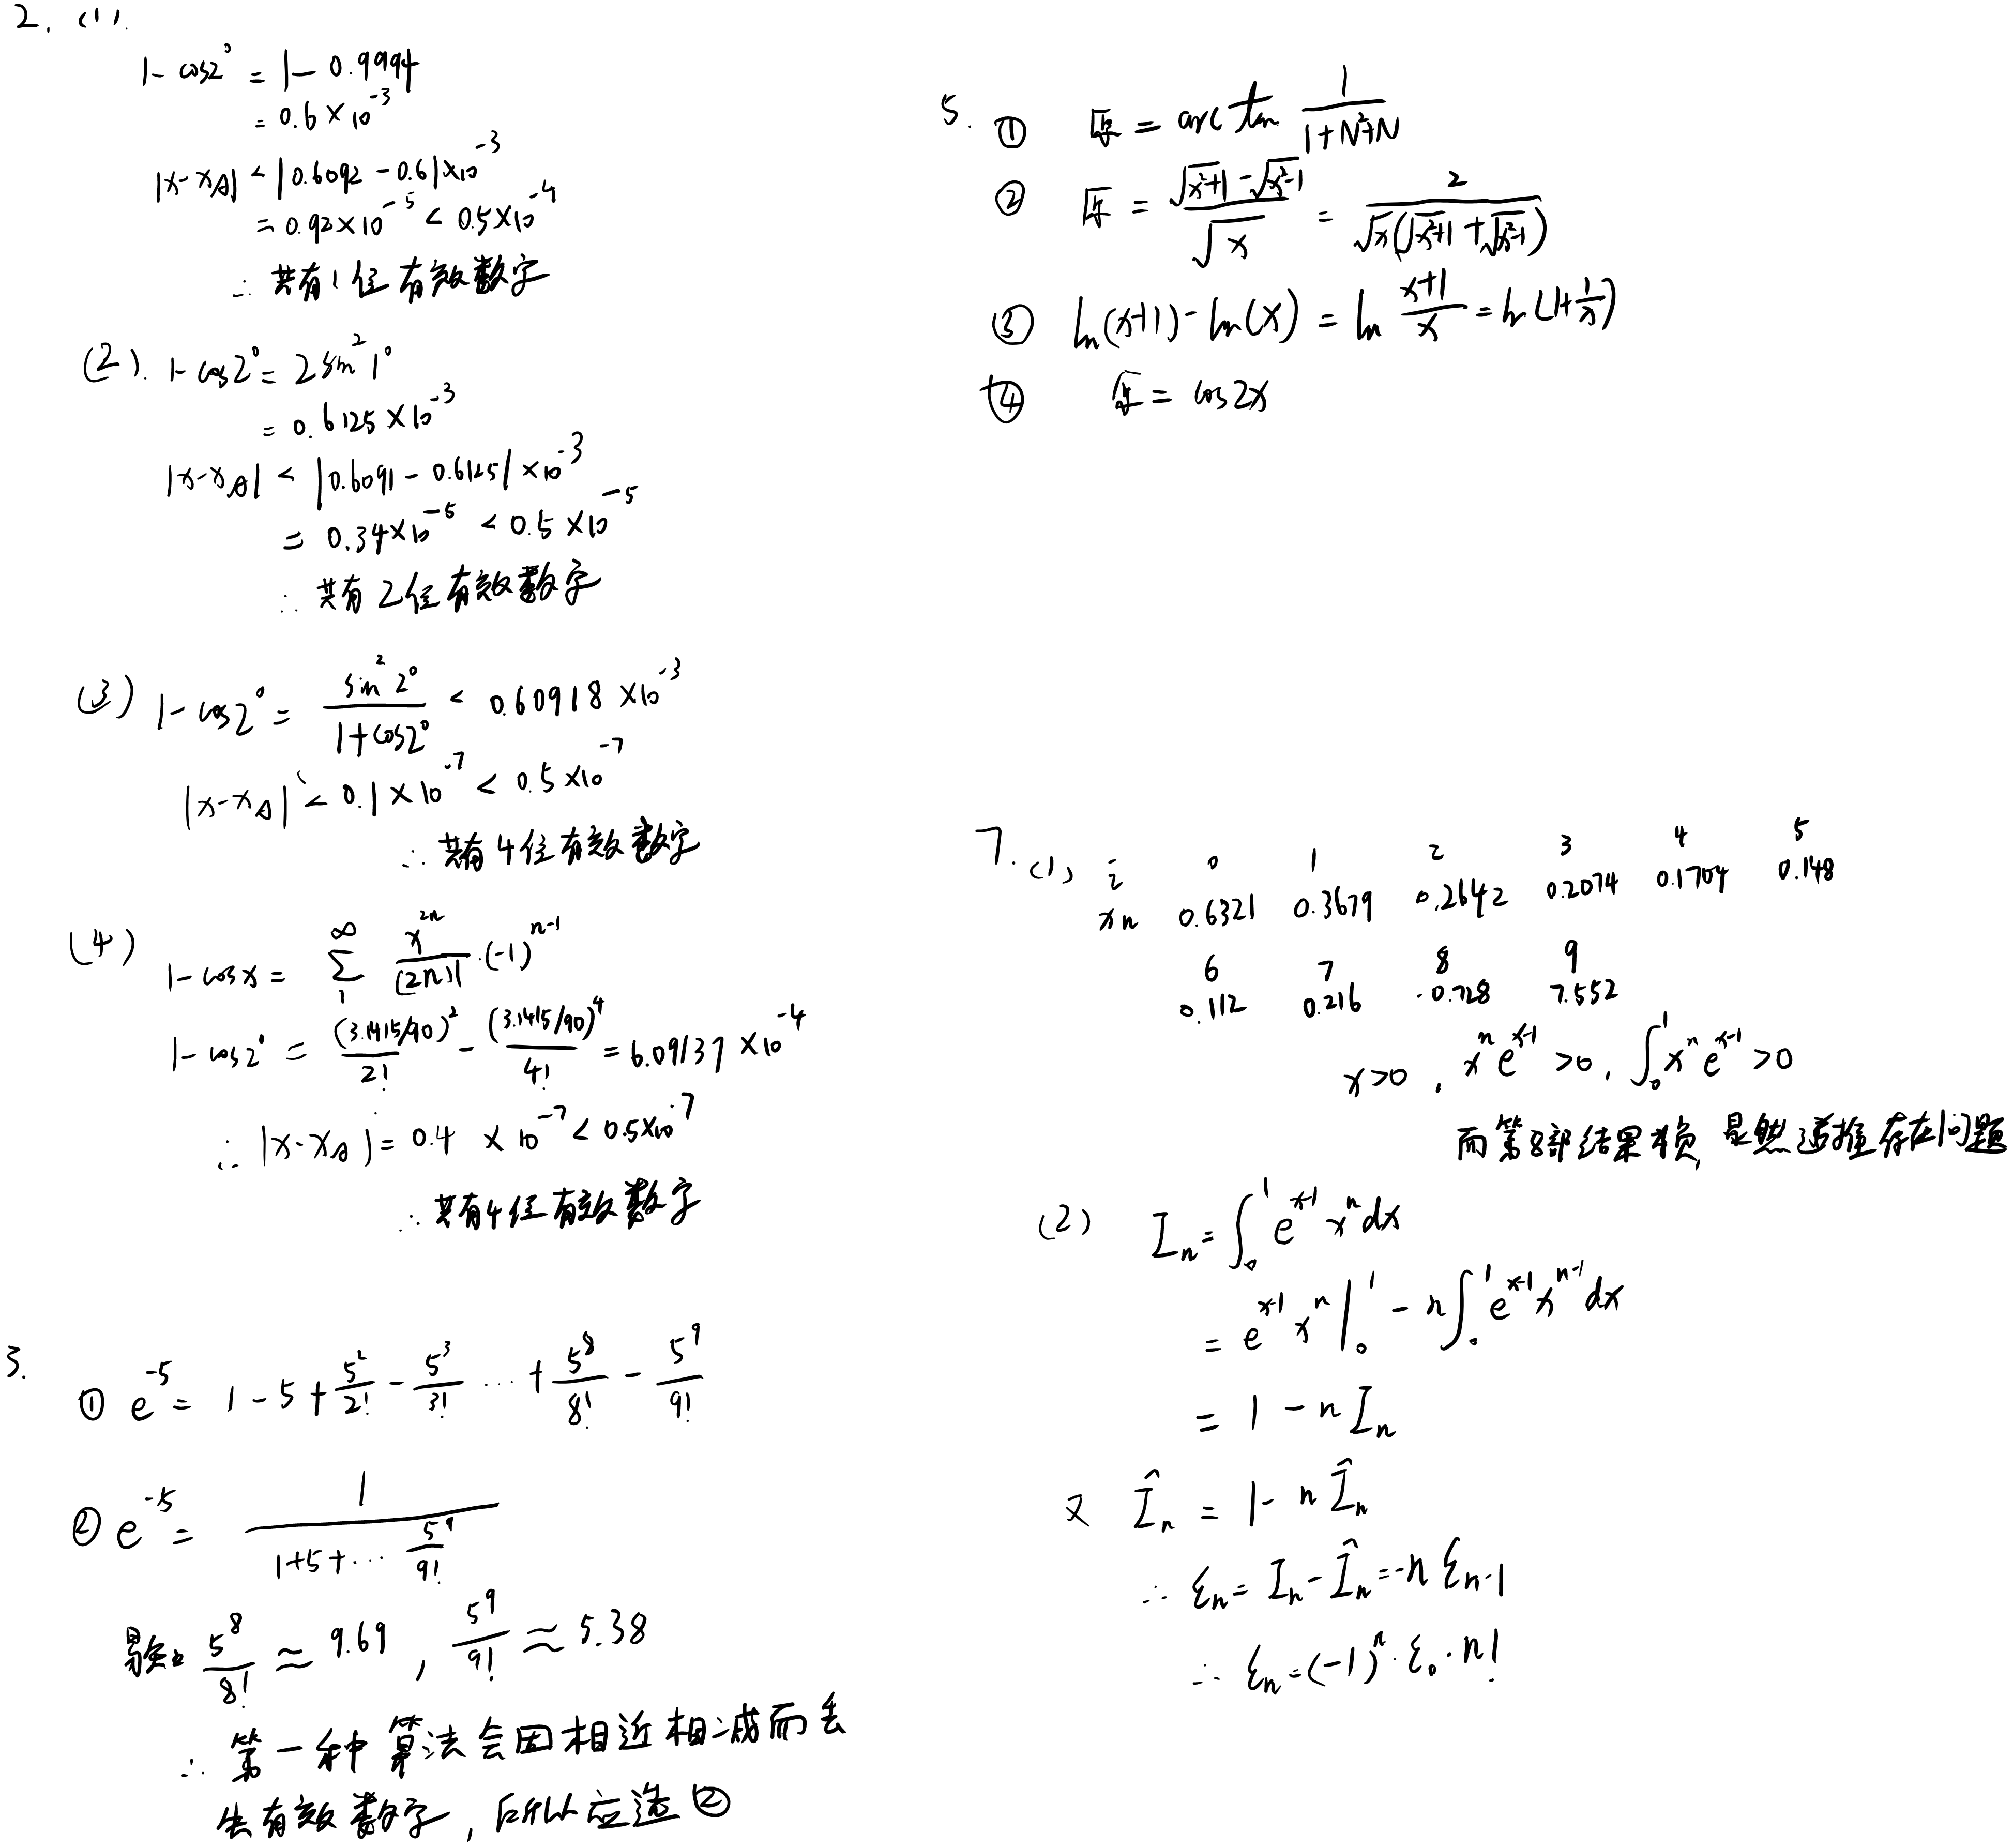 2. (1).
1 - cos2° = 1 - 0.9994
= 0.6 × 10^-3
|x - x_A| < |0.6092 - 0.6| × 10^-3
= 0.92 × 10^-5 < 0.5 × 10^-4
∴ 共有1位有效数字
(2). 1 - cos2° = 2 sin^2 1°
= 0.6125 × 10^-3
|x - x_A| < |0.6091 - 0.6125| × 10^-3
= 0.34 × 10^-5 < 0.5 × 10^-5
∴ 共有2位有效数字
(3) 1 - cos2° = sin^2 2° / (1 + cos2°) < 0.60918 × 10^-3
|x - x_A| < 0.1 × 10^-7 < 0.5 × 10^-7
∴ 共有4位有效数字
(4) 1 - cosx = ∑_1^∞ x^2n / (2n)! · (-1)^n-1
1 - cos2° = (3.1415/90)^2 / 2! - (3.1415/90)^4 / 4! = 6.09137 × 10^-4
∴ |x - x_A| = 0.4 × 10^-7 < 0.5 × 10^-7
∴ 共有4位有效数字
3. ① e^-5 = 1 - 5 + 5^2/2! - 5^3/3! ··· + 5^8/8! - 5^9/9!
② e^-5 = 1 / (1 + 5 + ··· 5^9/9!)
易知 5^8/8! ≈ 9.69 , 5^9/9! ≈ 5.38
∴ 第一种算法会因相近相减而丢
失有效数字, 所以应选②
5. ① 原 = arctan 1 / (1 + N^2 + N)
② 原 = (√(x^2+1) - √(x^2-1)) / √x = 2 / (√x(√(x^2+1) + √(x^2-1)))
③ ln(x+1) - ln(x) = ln (x+1)/x = ln(1 + 1/x)
④ 原 = cos2x
7. (1) i 0 1 2 3 4 5
x_n 0.6321 0.3679 0.2642 0.2074 0.1704 0.148
6 7 8 9
0.112 0.216 -0.728 7.552
x>0 , x^n e^x-1 >0 , ∫_0^1 x^n e^x-1 >0
而第8部结果为负, 显然递推存在问题
(2) I_n = ∫_0^1 e^x-1 x^n dx
= e^x-1 x^n |_0^1 - n∫_0^1 e^x-1 x^n-1 dx
= 1 - n I_n
又 Î_n = 1 - n Î_n
∴ ε_n = I_n - Î_n = -n ε_n-1
∴ ε_n = (-1)^n · ε_0 · n!